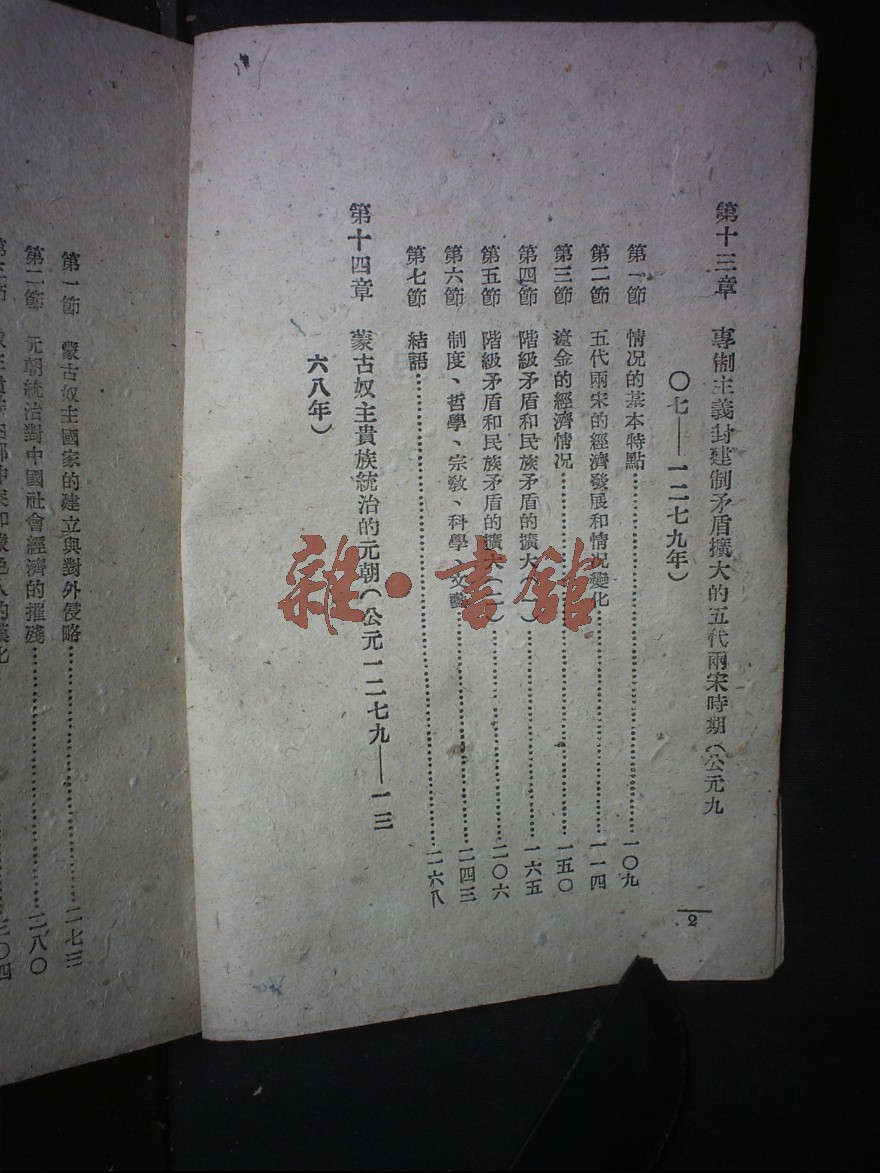 第十三章　專制主義封建制矛盾擴大的五代兩宋時期（公元九
〇七——一二七九年）
第一節　情况的基本特點……一〇九
第二節　五代兩宋的經濟發展和情况變化……一一四
第三節　遼金的經濟情况……一五〇
第四節　階級矛盾和民族矛盾的擴大（一）……一六五
第五節　階級矛盾和民族矛盾的擴大（二）……二〇六
第六節　制度、哲學、宗教、科學、文藝……二四三
第七節　結語……二六八
第十四章　蒙古奴主貴族統治的元朝（公元一二七九——一三
六八年）
2
第一節　蒙古奴主國家的建立與對外侵略……二七三
第二節　元朝統治對中國社會經濟的摧殘……二八〇
第三節
的漢化……三〇四
雜·書館